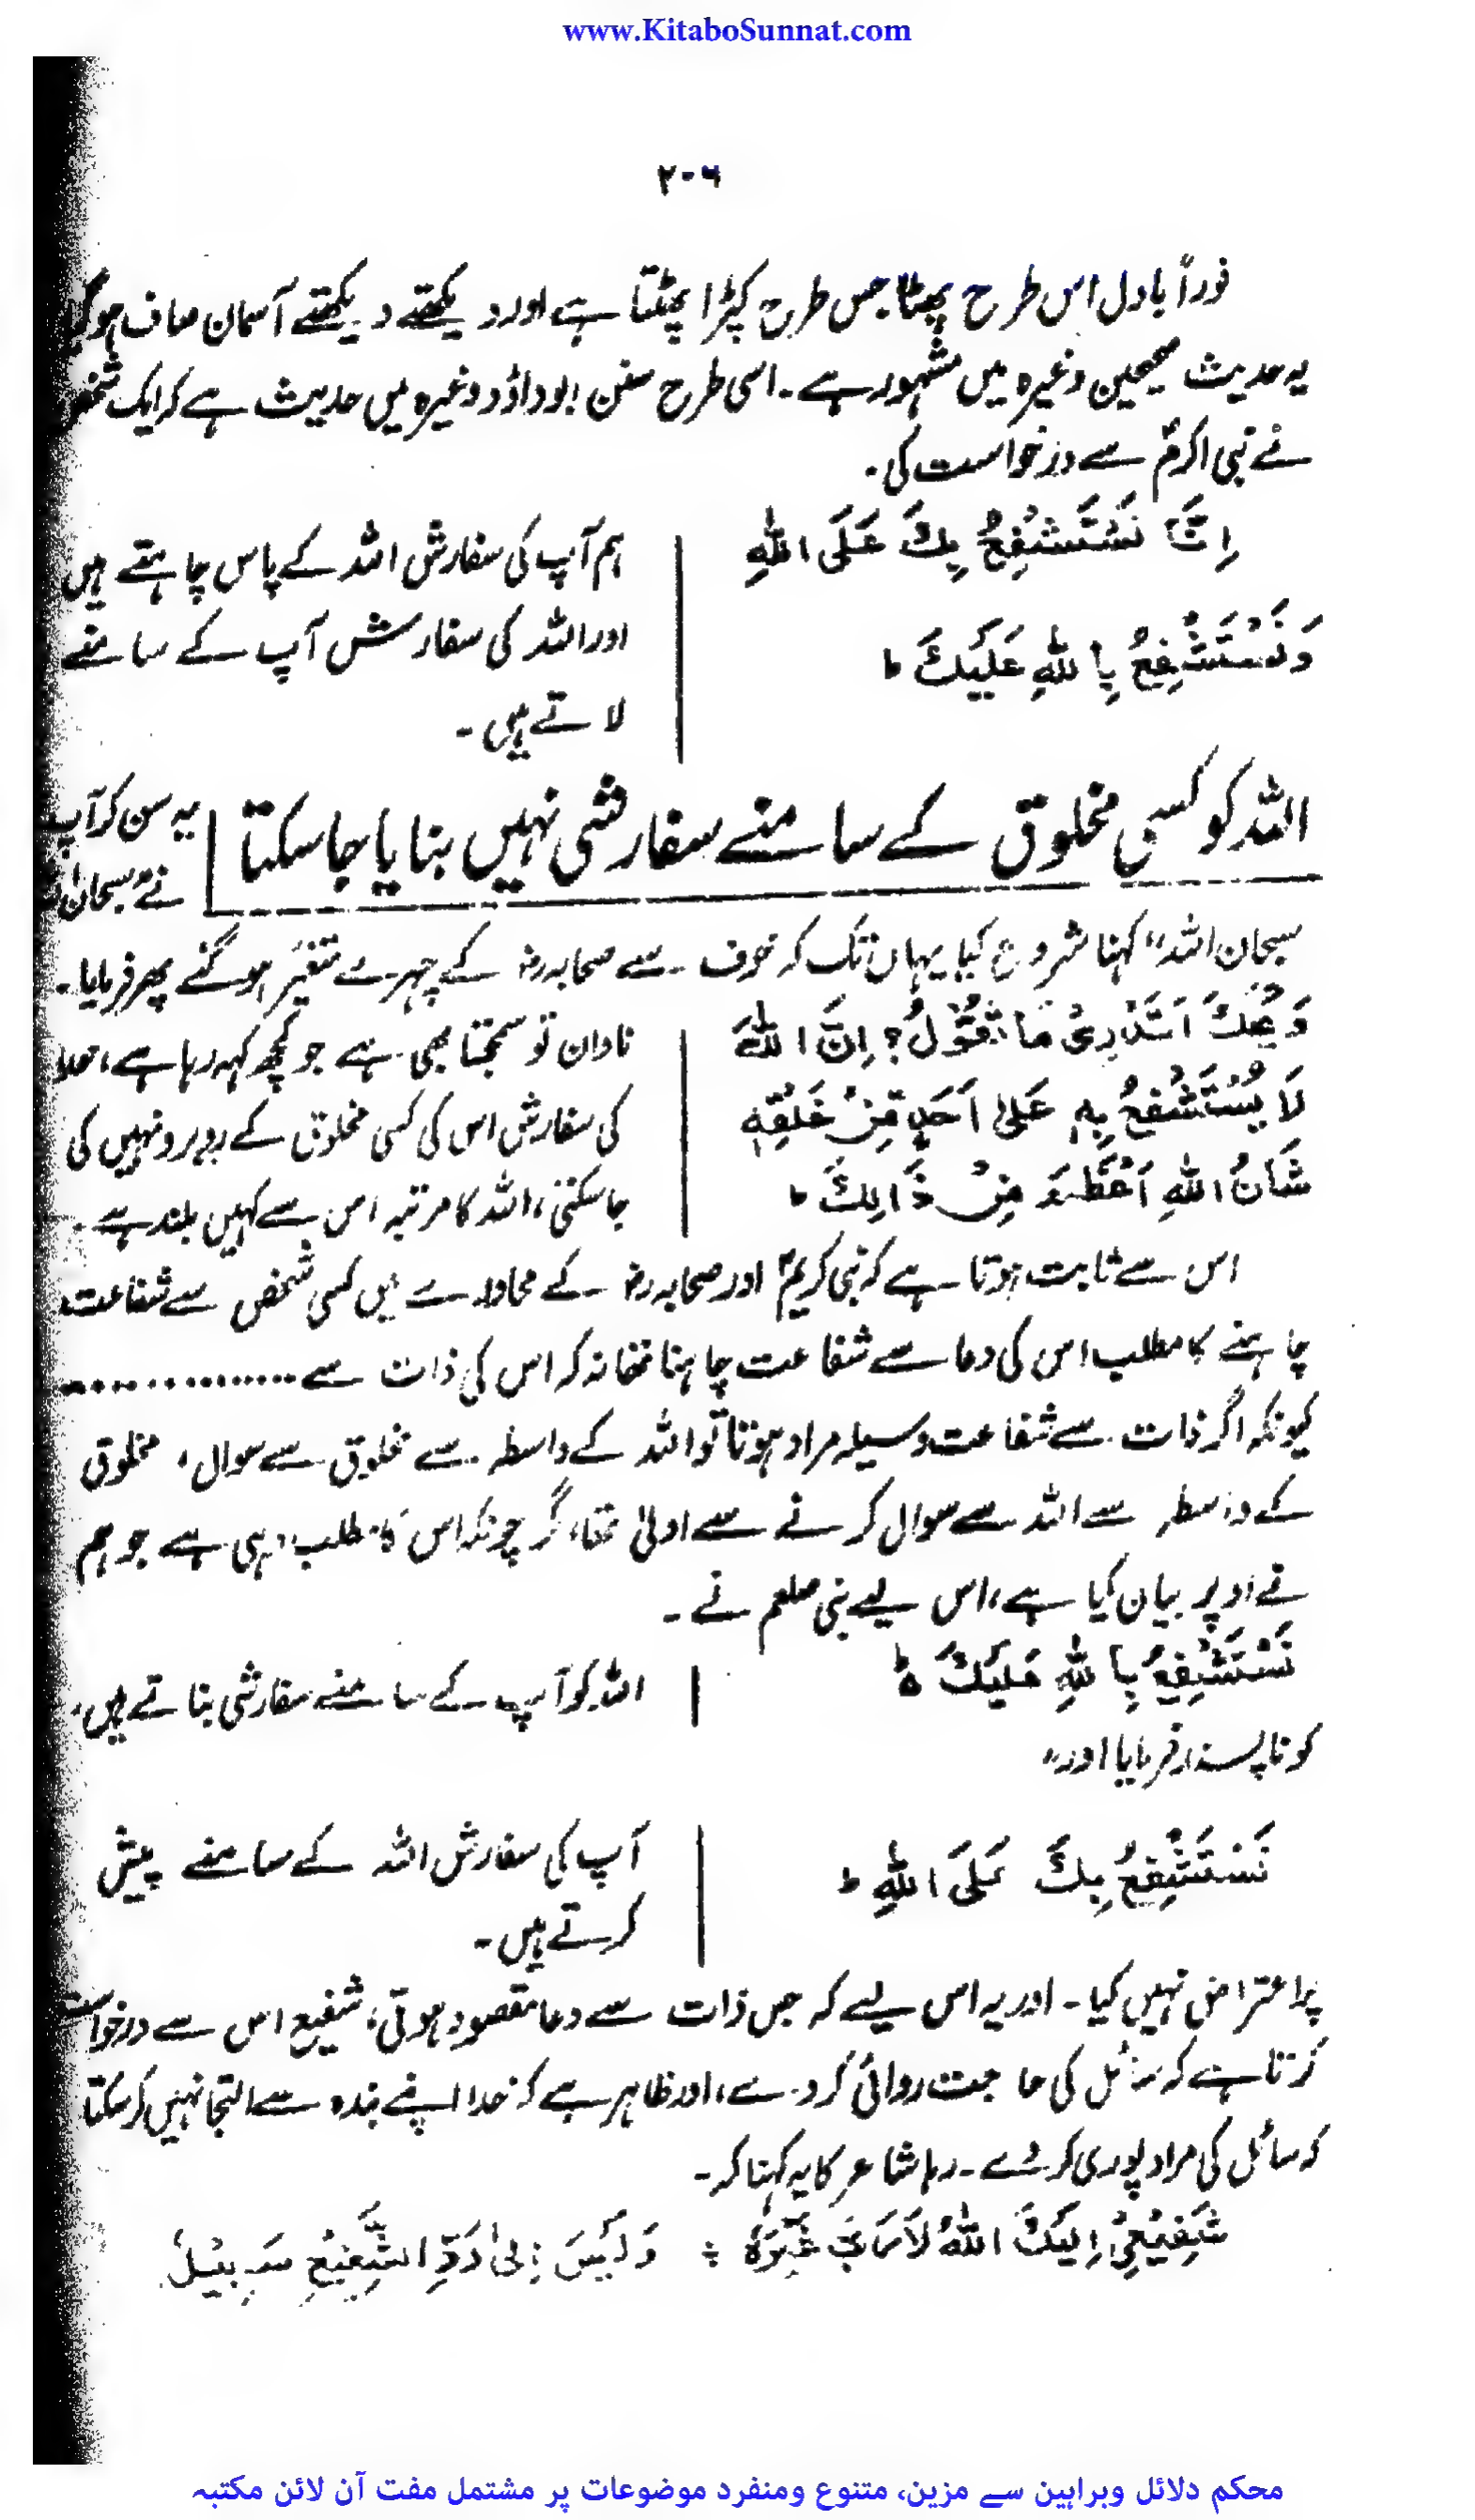 www.KitaboSunnat.com
۲۰۶
فوراً بادل اس طرح پھٹا جس طرح کپڑا پھٹتا ہے اور دیکھتے دیکھتے آسمان صاف ہوگیا
یہ حدیث صحیحین وغیرہ میں مشہور ہے۔ اسی طرح سنن ابوداؤد وغیرہ میں حدیث ہے کہ ایک شخص
نے نبی اکرمؐ سے درخواست کی۔
اِنَّا نَسْتَشْفِعُ بِكَ عَلَى اللهِ
وَنَسْتَشْفِعُ بِاللهِ عَلَيْكَ ؕ
ہم آپ کی سفارش اللہ کے پاس چاہتے ہیں
اور اللہ کی سفارش آپ کے سامنے
لاتے ہیں۔
اللہ کو کسی مخلوق کے سامنے سفارشی نہیں بنایا جاسکتا
یہ سن کر آپ
نے "سبحان اللہ
سبحان اللہ" کہنا شروع کیا یہاں تک کہ خوف سے صحابہ رضؓ کے چہرے متغیر ہوگئے پھر فرمایا۔
وَيْحَكَ اَتَدْرِىْ مَا تَقُوْلُ؟ اِنَّ اللهَ
لَا يُسْتَشْفَعُ بِهٖ عَلٰى اَحَدٍ مِّنْ خَلْقِهٖ
شَاْنُ اللهِ اَعْظَمُ مِنْ ذَالِكَ ؕ
نادان تو سمجھتا بھی ہے جو کچھ کہہ رہا ہے، خدا
کی سفارش اس کی کسی مخلوق کے روبرو نہیں کی
جاسکتی، اللہ کا مرتبہ اس سے کہیں بلند ہے۔
اس سے ثابت ہوتا ہے کہ نبی کریمؐ اور صحابہ رضؓ کے محاورے میں کسی شخص سے شفاعت
چاہنے کا مطلب اس کی دعا سے شفاعت چاہنا تھا نہ کہ اس کی ذات سے ..............
کیونکہ اگر ذات سے شفاعت وسیلہ مراد ہوتا تو اللہ کے واسطہ سے مخلوق سے سوال، مخلوق
کے واسطہ سے اللہ سے سوال کرنے سے اولیٰ تھا، مگر چونکہ اس کا مطلب وہی ہے جو ہم
نے اوپر بیان کیا ہے، اس لیے نبی صلعم نے۔
نَسْتَشْفِعُ بِاللهِ عَلَيْكَ ؕ
اللہ کو آپ کے سامنے سفارشی بناتے ہیں،
کو ناپسند فرمایا اور"
نَسْتَشْفِعُ بِكَ عَلَى اللهِ ؕ
آپ کی سفارش اللہ کے سامنے پیش
کرتے ہیں۔
پر اعتراض نہیں کیا۔ اور یہ اس لیے کہ جس ذات سے دعا مقصود ہوتی، شفیع اس سے درخواست
کرتا ہے کہ سائل کی حاجت روائی کردے، اور ظاہر ہے کہ خدا اپنے بندہ سے التجا نہیں کرسکتا
کہ سائل کی مراد پوری کردے۔ رہا شاعر کا یہ کہنا کہ۔
شَفِيْعِىْ اِلَيْكَ اللهُ لَارَبَّ غَيْرَهٗ ؞ وَلَيْسَ اِلٰى رَدِّ الشَّفِيْعِ سَبِيْلُ
محکم دلائل وبراہین سے مزین، متنوع ومنفرد موضوعات پر مشتمل مفت آن لائن مکتبہ